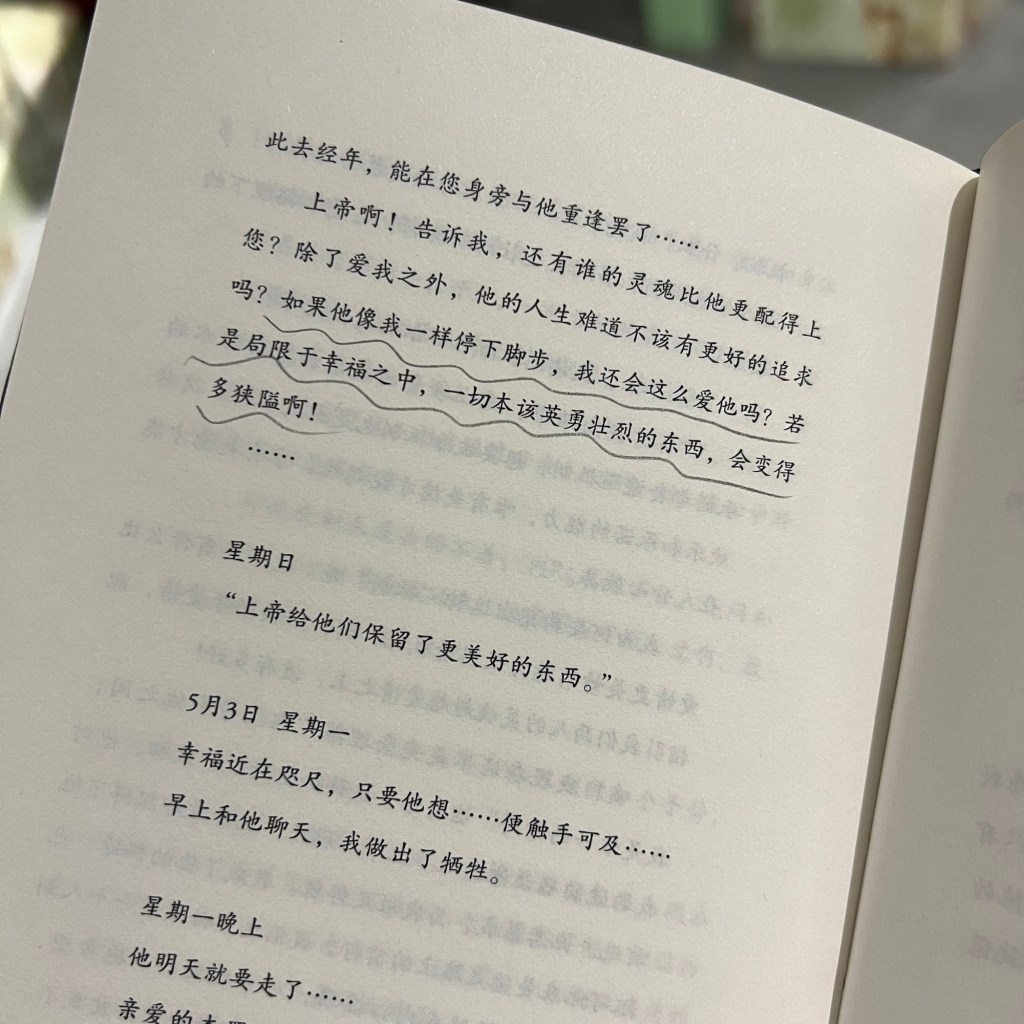 此去经年，能在您身旁与他重逢罢了……
上帝啊！告诉我，还有谁的灵魂比他更配得上
您？除了爱我之外，他的人生难道不该有更好的追求
吗？如果他像我一样停下脚步，我还会这么爱他吗？若
是局限于幸福之中，一切本该英勇壮烈的东西，会变得
多狭隘啊！
……
星期日
“上帝给他们保留了更美好的东西。”
5月3日 星期一
幸福近在咫尺，只要他想……便触手可及……
早上和他聊天，我做出了牺牲。
星期一晚上
他明天就要走了……
亲爱的杰罗